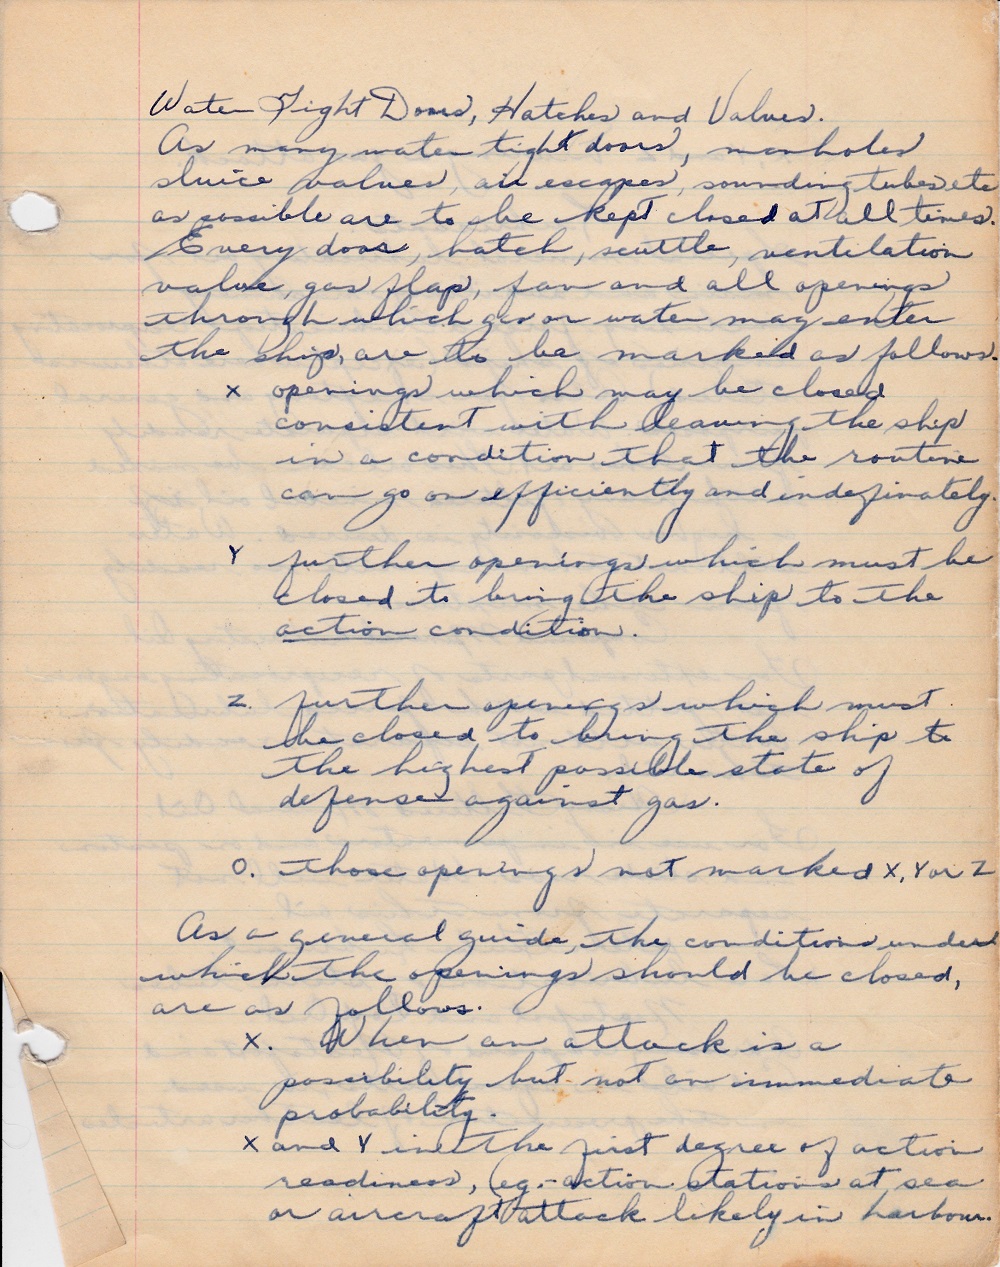 Water Tight Doors, Hatches and Valves.
As many water tight doors, manholes
sluice valves, air escapes, sounding tubes etc
as possible are to be kept closed at all times.
Every door, hatch, scuttle, ventilation
valve, gas flap, fan and all openings
through which gas or water may enter
the ship, are to be marked as follows.
X openings which may be closed
consistent with leaving the ship
in a condition that the routine
can go on efficiently and indefinately.
Y further openings which must be
closed to bring the ship to the
action condition.
Z. further openings which must
be closed to bring the ship to
the highest possible state of
defense against gas.
O. those openings not marked X, Y or Z
As a general guide, the conditions under
which the openings should be closed,
are as follows.
X. When an attack is a
possibility but not an immediate
probability.
X and Y in the first degree of action
readiness, (eg.- action stations at sea
or aircraft attack likely in harbour.